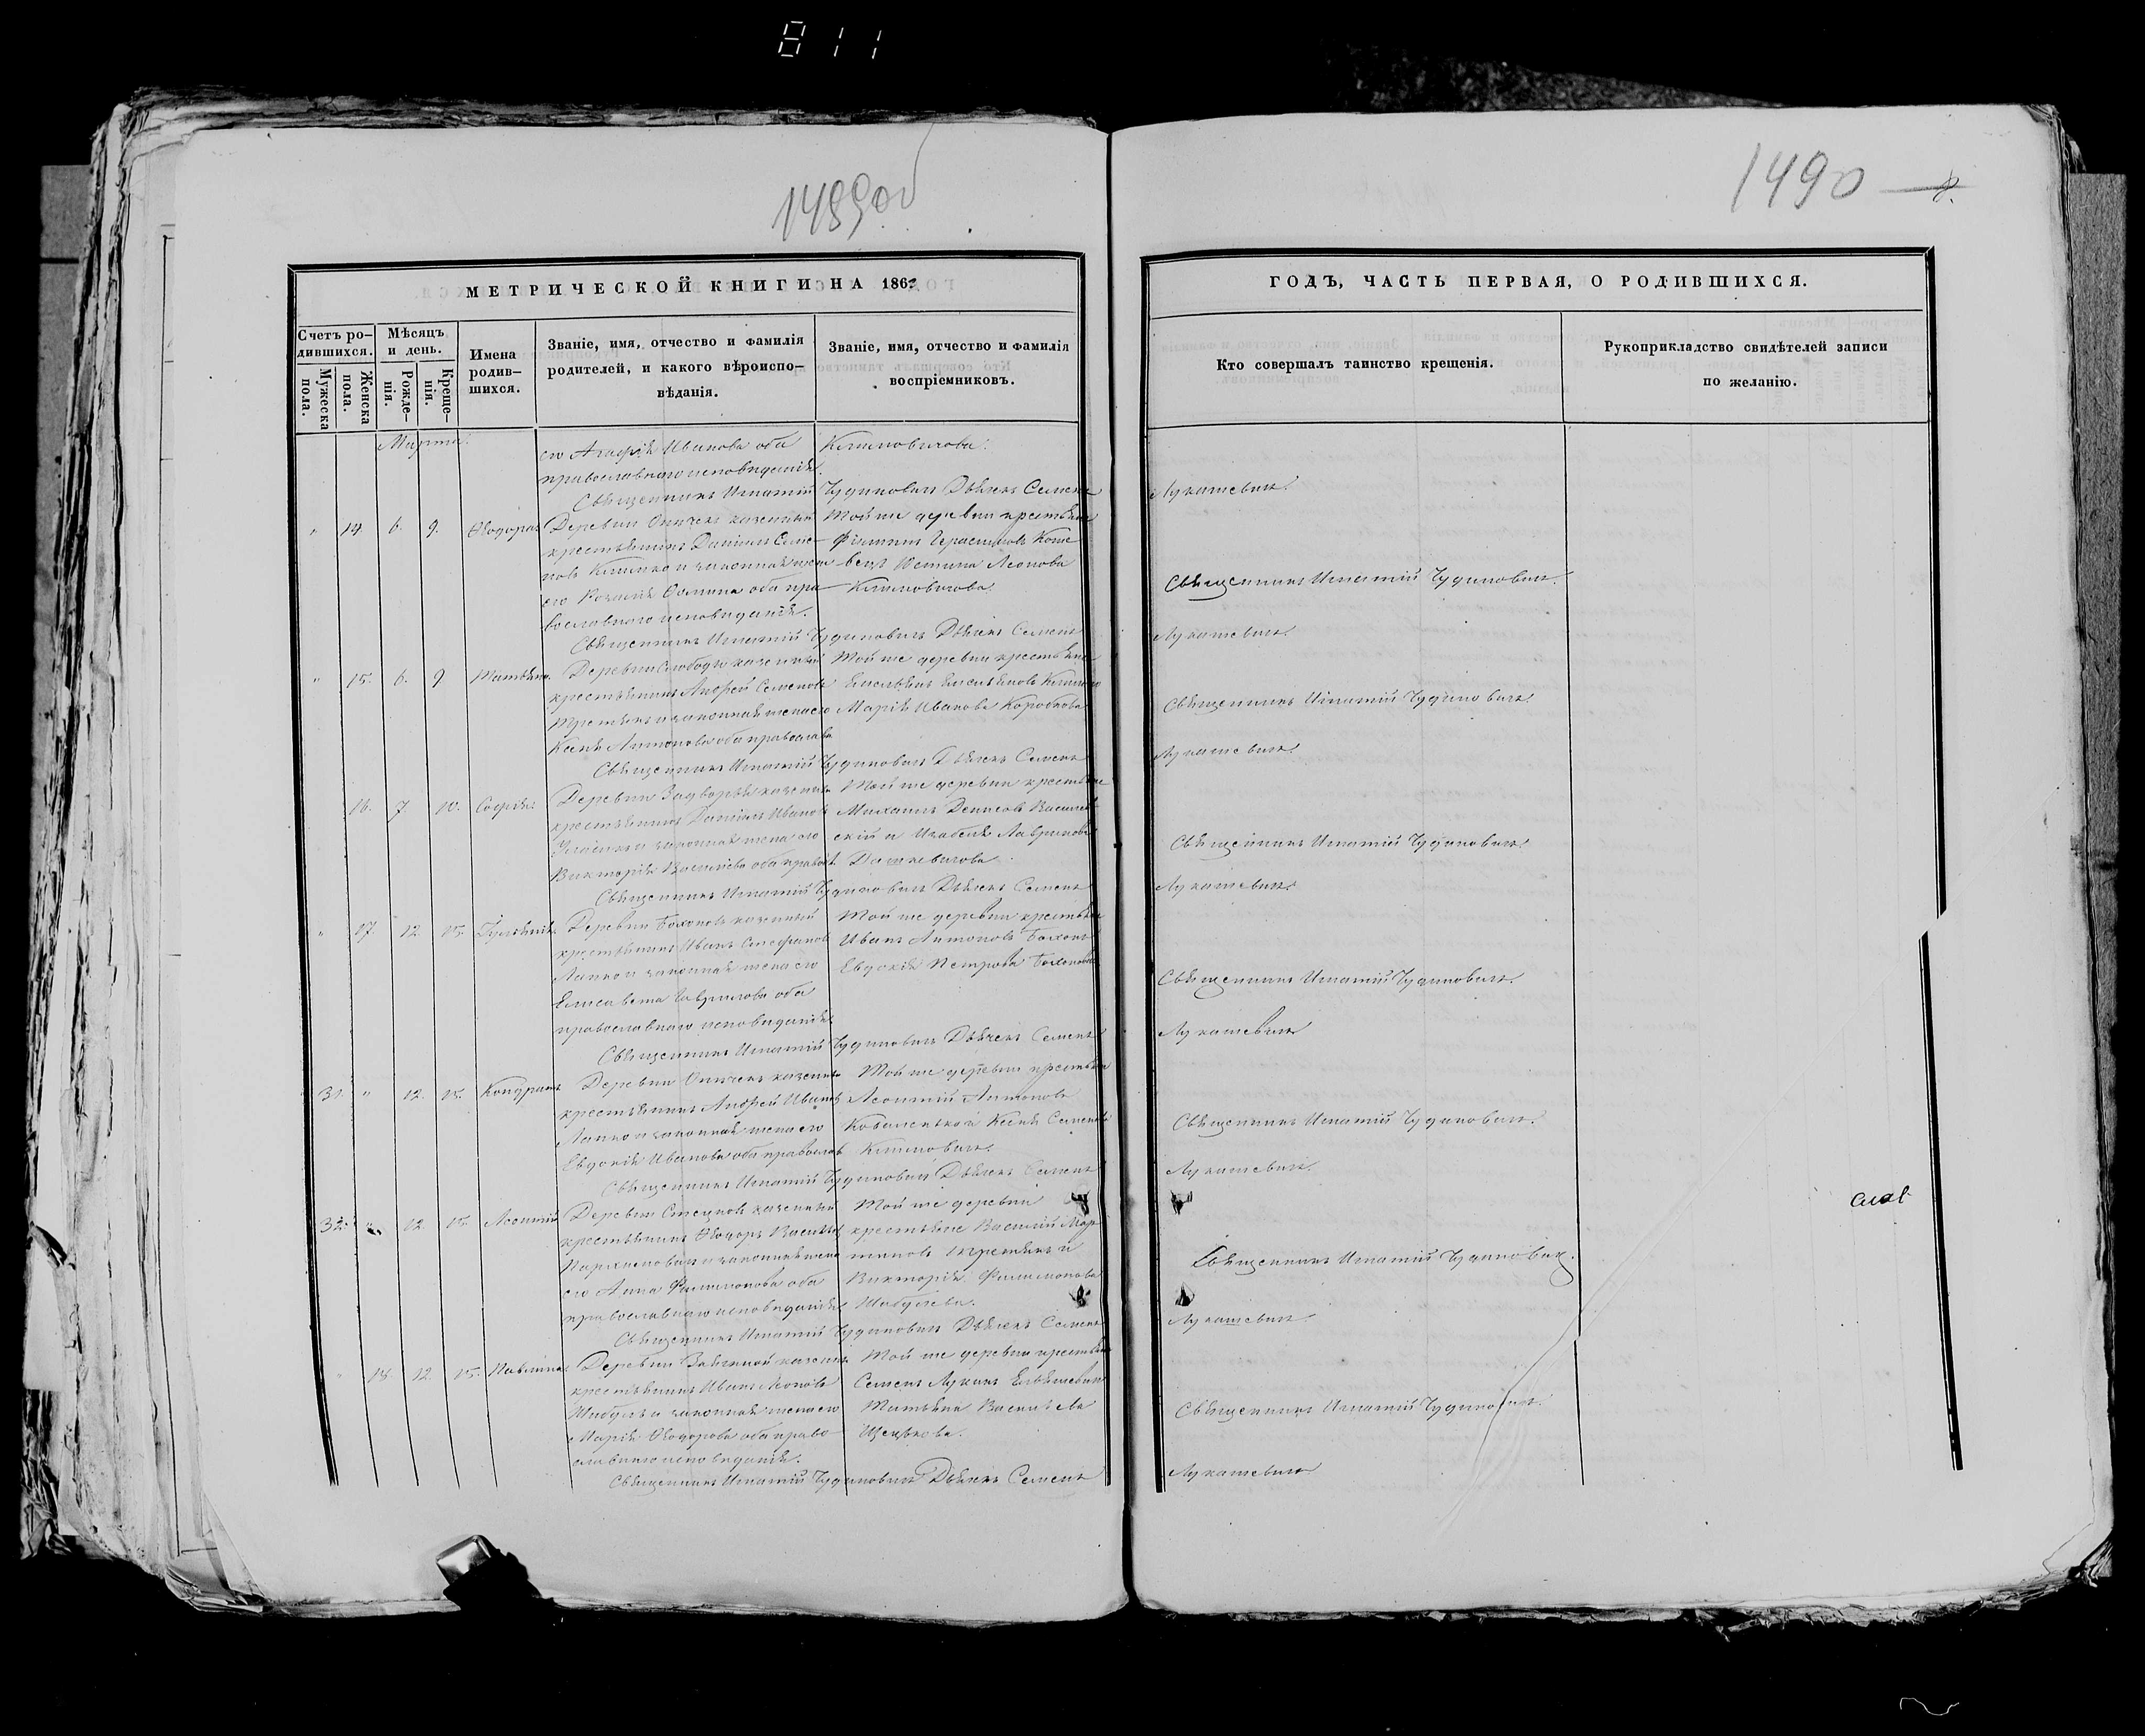 811
1489об
1490
МЕТРИЧЕСКОЙ КНИГИ НА 186
ГОДЪ, ЧАСТЬ ПЕРВАЯ, О РОДИВШИХСЯ.
Счетъ ро-
дившихся.
Мужеска
пола.
Женска
пола.
Мѣсяцъ
и день.
Рожде-
нія.
Креще-
нія.
Имена
родив-
шихся.
Званіе, имя, отчество и фамилія
родителей, и какого вѣроиспо-
вѣданія.
Званіе, имя, отчество и фамилія
воспріемниковъ.
Кто совершалъ таинство крещенія.
Рукоприкладство свидѣтелей записи
по желанію.
Марта
его Агафія Иванова оба
православнаго исповѣданія.
Климовичова.
Священникъ Игнатій Чудиновичъ Дьячекъ Семенъ
Лукашевичъ.
" 14. 6. 9. Ѳеодора
Деревни казенный
крестьянинъ Даніилъ Семе-
новъ Климко и законная жена
его Розалія Ѳомина оба пра-
вославнаго исповѣданія.
Той же деревни крестьяне
Филиппъ Герасимовъ
Устина Леонова
Климовичова.
Священникъ Игнатій Чудиновичъ.
Священникъ Игнатій Чудиновичъ Дьячекъ Семенъ
Лукашевичъ.
" 15. 6. 9 Татьяна
Деревни Слободы казенный
крестьянинъ Андрей Семеновъ
Третьякъ и законная жена его
Ксенія Антонова оба православ
Той же деревни крестьяне
Емельянъ Емельяновъ
Марія Иванова Коробкова
Священникъ Игнатій Чудиновичъ.
Священникъ Игнатій Чудиновичъ Дьячекъ Семенъ
Лукашевичъ.
16. 7 10. Софія
Деревни Задворья казенный
крестьянинъ Даніилъ Ивановъ
и законная жена его
Викторія Васильева оба правосл
Той же деревни крестьяне
Михаилъ Денисовъ Василев-
скій и Изабелла Лавринова
Дашкевичова.
Священникъ Игнатій Чудиновичъ.
Священникъ Игнатій Чудиновичъ Дьячекъ Семенъ
Лукашевичъ.
" 17. 12 15. Гуліянія
Деревни Бохоновъ казенный
крестьянинъ Иванъ Стефановъ
Лапко и законная жена его
Елисавета Гаврилова оба
православнаго исповѣданія
Той же деревни крестьяне
Иванъ Антоновъ Бохонъ
Евдокія Петрова Бохонова
Священникъ Игнатій Чудиновичъ.
Священникъ Игнатій Чудиновичъ Дьячекъ Семенъ
Лукашевичъ
31. " 12. 15. Кондратъ
Деревни казенный
крестьянинъ Андрей Ивановъ
Лапко и законная жена его
Евдокія Иванова оба православ
Той же деревни крестьяне
Леонтій Антоновъ
Ксенія Семенова
Климовичъ.
Священникъ Игнатій Чудиновичъ.
Священникъ Игнатій Чудиновичъ Дьячекъ Семенъ
Лукашевичъ.
32. " 12. 15. Леонтій
Деревни казенный
крестьянинъ Ѳеодоръ Васильев
Пархимовичъ и законная жена
его Анна Филимонова оба
православнаго исповѣданія
Той же деревни
крестьяне Василій Мар-
тиновъ Третьякъ и
Викторія Филимонова
Шабулева.
Священникъ Игнатій Чудиновичъ.
Священникъ Игнатій Чудиновичъ Дьячекъ Семенъ
Лукашевичъ.
" 18. 12. 15. Павлина
Деревни казенный
крестьянинъ Иванъ Леоновъ
Шабуль и законная жена его
Марія Ѳеодорова оба право-
славнаго исповѣданія.
Той же деревни крестьяне
Семенъ Лукинъ
Татьяна Васильева
Священникъ Игнатій Чудиновичъ.
Священникъ Игнатій Чудиновичъ Дьячекъ Семенъ
Лукашевичъ